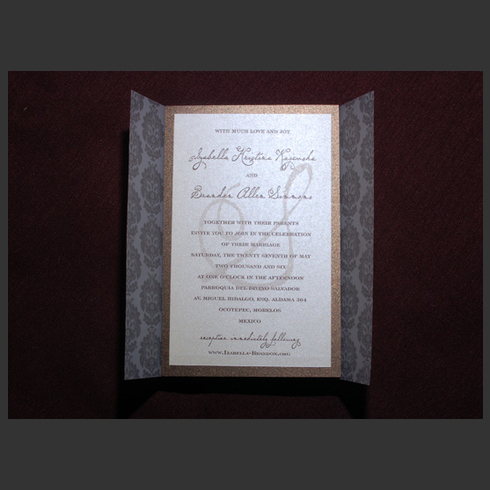 WITH MUCH LOVE AND JOY
Izabella Kristina
AND
Brandon Allen Simmons
TOGETHER WITH THEIR PARENTS
INVITE YOU TO JOIN IN THE CELEBRATION
OF THEIR MARRIAGE
SATURDAY, THE TWENTY SEVENTH OF MAY
TWO THOUSAND AND SIX
AT ONE O'CLOCK IN THE AFTERNOON
PARROQUIA DEL DIVINO SALVADOR
AV. MIGUEL HIDALGO, ESQ. ALDAMA 204
OCOTEPEC, MORELOS
MEXICO
reception immediately following
www.Izabella-Brandon.org